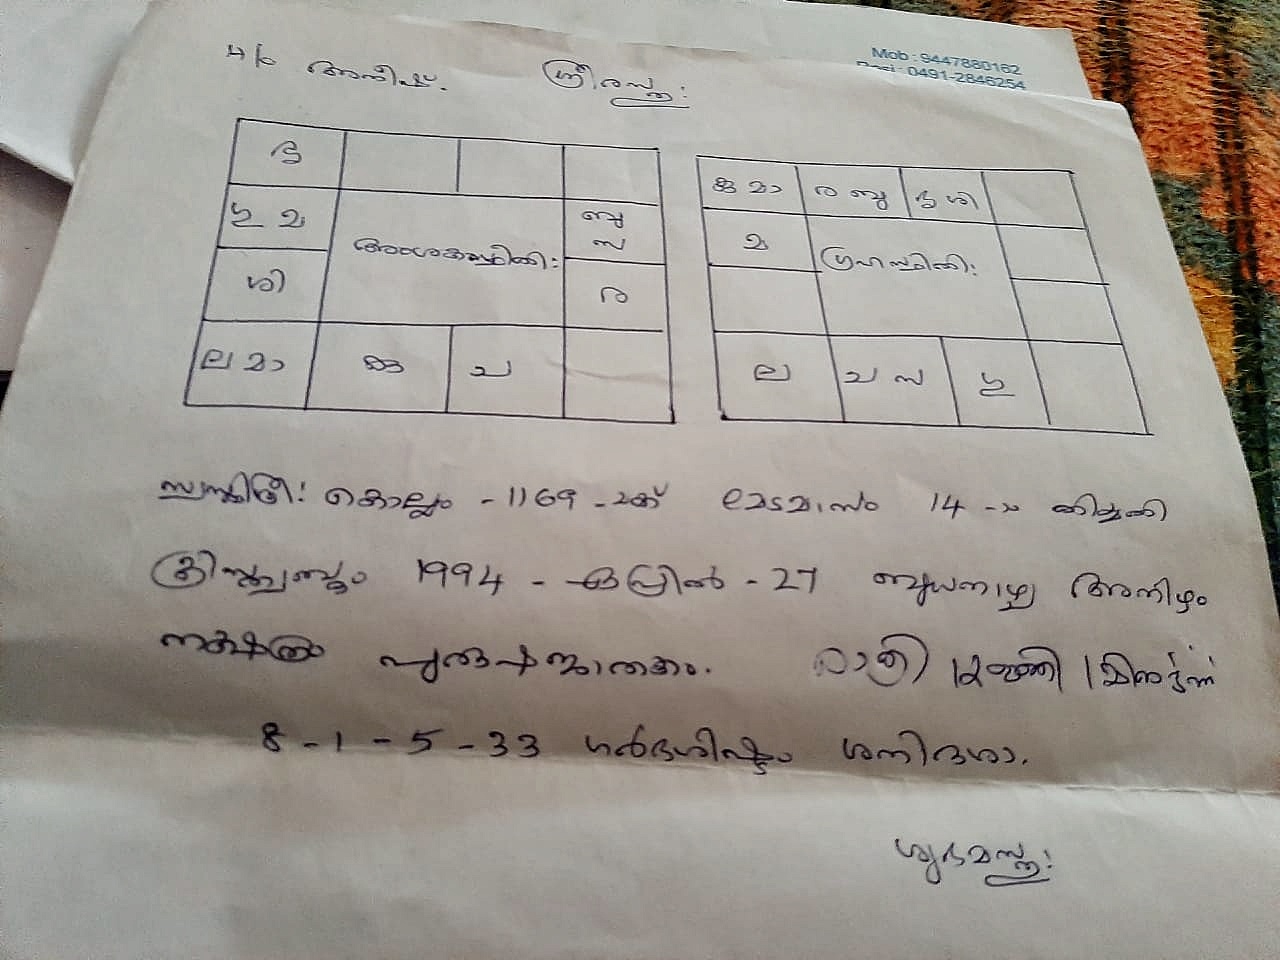 Mob : 9447880162
0491-2846254
അനീഷ്. ശ്രീരസ്തു:
ഭൃ
ഗു മ
ബു
സ
അംശകസ്ഥിതി:
ശി
ര
ല മാ
കു
ച
കു മാ
ര ബു
ഭൃ ശി
മ
ഗ്രഹസ്ഥിതി:
ല
ച സ
ഗു
സ്വസ്തിശ്രീ: കൊല്ലം - 1169 - മത് മേടമാസം 14 -ാം തിയ്യതി
ക്രിസ്ത്വബ്ദം 1994 - ഏപ്രിൽ - 27 ബുധനാഴ്ച അനിഴം
നക്ഷത്രം പുരുഷജാതകം. രാത്രി 12 മണി 1 മിനുട്ടിന്ന്
8 - 1 - 5 - 33 ഗർഭശിഷ്ടം ശനിദശാ.
ശുഭമസ്തു: